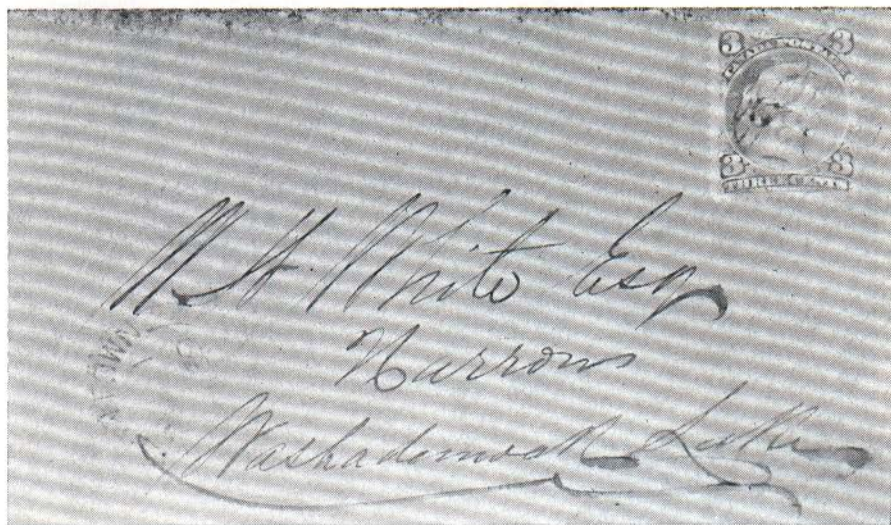 3 3
CANADA POSTAGE
3 3
THREE CENTS
W H White Esq
Narrows
Washademoak Lake